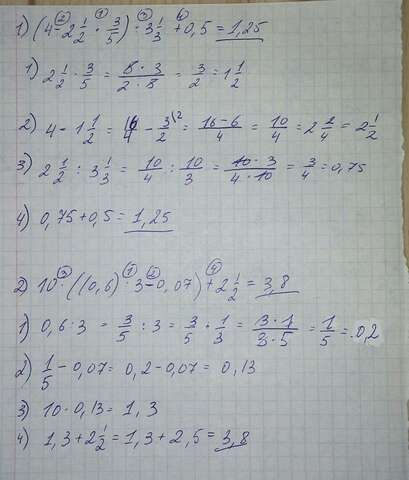 1) (4 - 2 1/2 · 3/5) : 3 1/3 + 0,5 = 1,25
① ② ③ ④
1) 2 1/2 · 3/5 = 5·3/2·5 = 3/2 = 1 1/2
2) 4 - 1 1/2 = 16/4 - 3/2 \2 = 16-6/4 = 10/4 = 2 2/4 = 2 1/2
3) 2 1/2 : 3 1/3 = 10/4 : 10/3 = 10·3/4·10 = 3/4 = 0,75
4) 0,75 + 0,5 = 1,25
2) 10 · ((0,6) : 3 - 0,07) + 2 1/2 = 3,8
③ ① ② ④
1) 0,6 : 3 = 3/5 : 3 = 3/5 · 1/3 = 3·1/3·5 = 1/5 = 0,2
2) 1/5 - 0,07 = 0,2 - 0,07 = 0,13
3) 10 · 0,13 = 1,3
4) 1,3 + 2 1/2 = 1,3 + 2,5 = 3,8